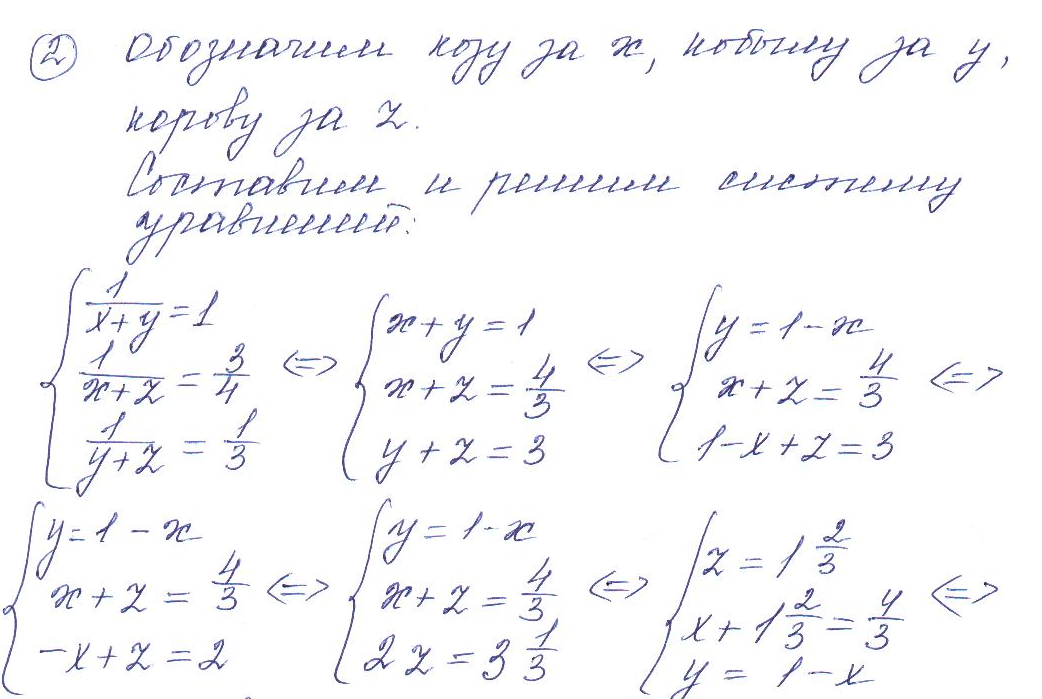 ② Обозначим козу за x, кобылу за y,
корову за z.
Составим и решим систему
уравнений:
{ 1/(x+y) = 1; 1/(x+z) = 3/4; 1/(y+z) = 1/3 <=> { x+y=1; x+z=4/3; y+z=3 <=> { y=1-x; x+z=4/3; 1-x+z=3 <=>
{ y=1-x; x+z=4/3; -x+z=2 <=> { y=1-x; x+z=4/3; 2z=3 1/3 <=> { z=1 2/3; x+1 2/3=4/3; y=1-x <=>